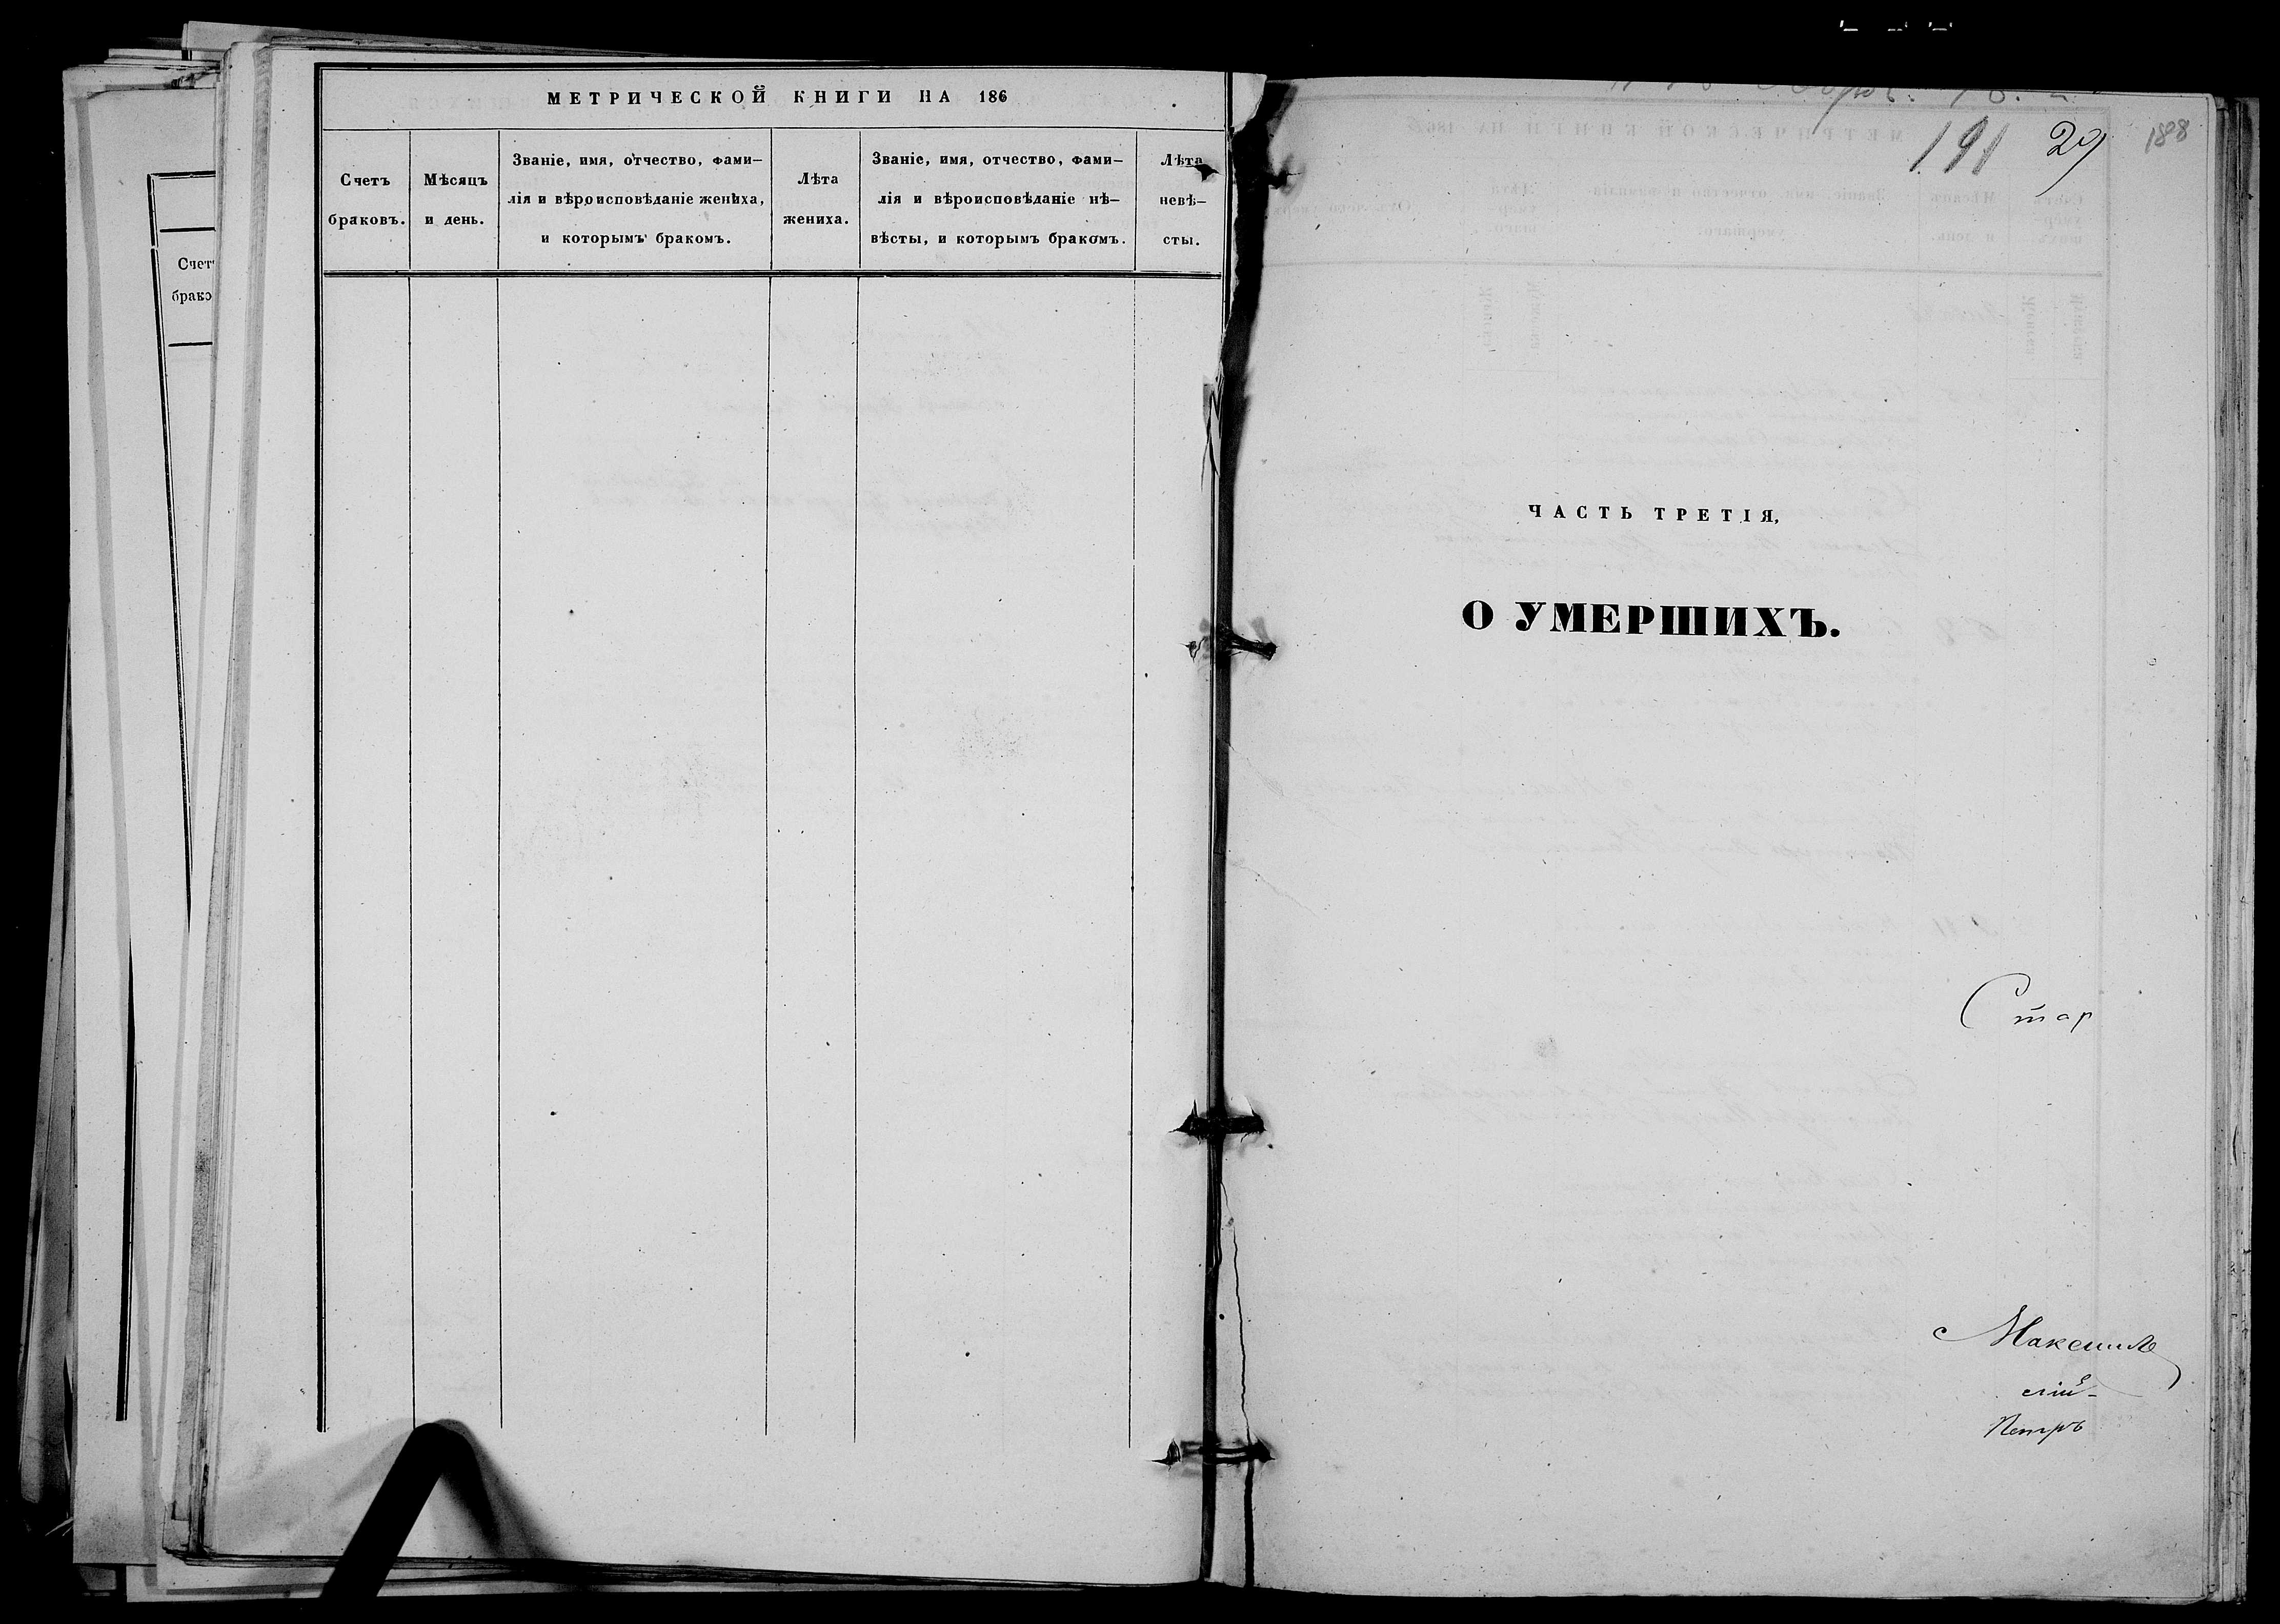 МЕТРИЧЕСКОЙ КНИГИ НА 186
Счетъ
браковъ.
Мѣсяцъ
и день.
Званіе, имя, отчество, фами–
лія и вѣроисповѣданіе жениха,
и которымъ бракомъ.
Лѣта
жениха.
Званіе, имя, отчество, фами–
лія и вѣроисповѣданіе нѣ–
вѣсты, и которымъ бракомъ.
Лѣта
невѣ–
сты.
Счет
брако
191 29 188
ЧАСТЬ ТРЕТІЯ,
О УМЕРШИХЪ.
Стар
Петръ